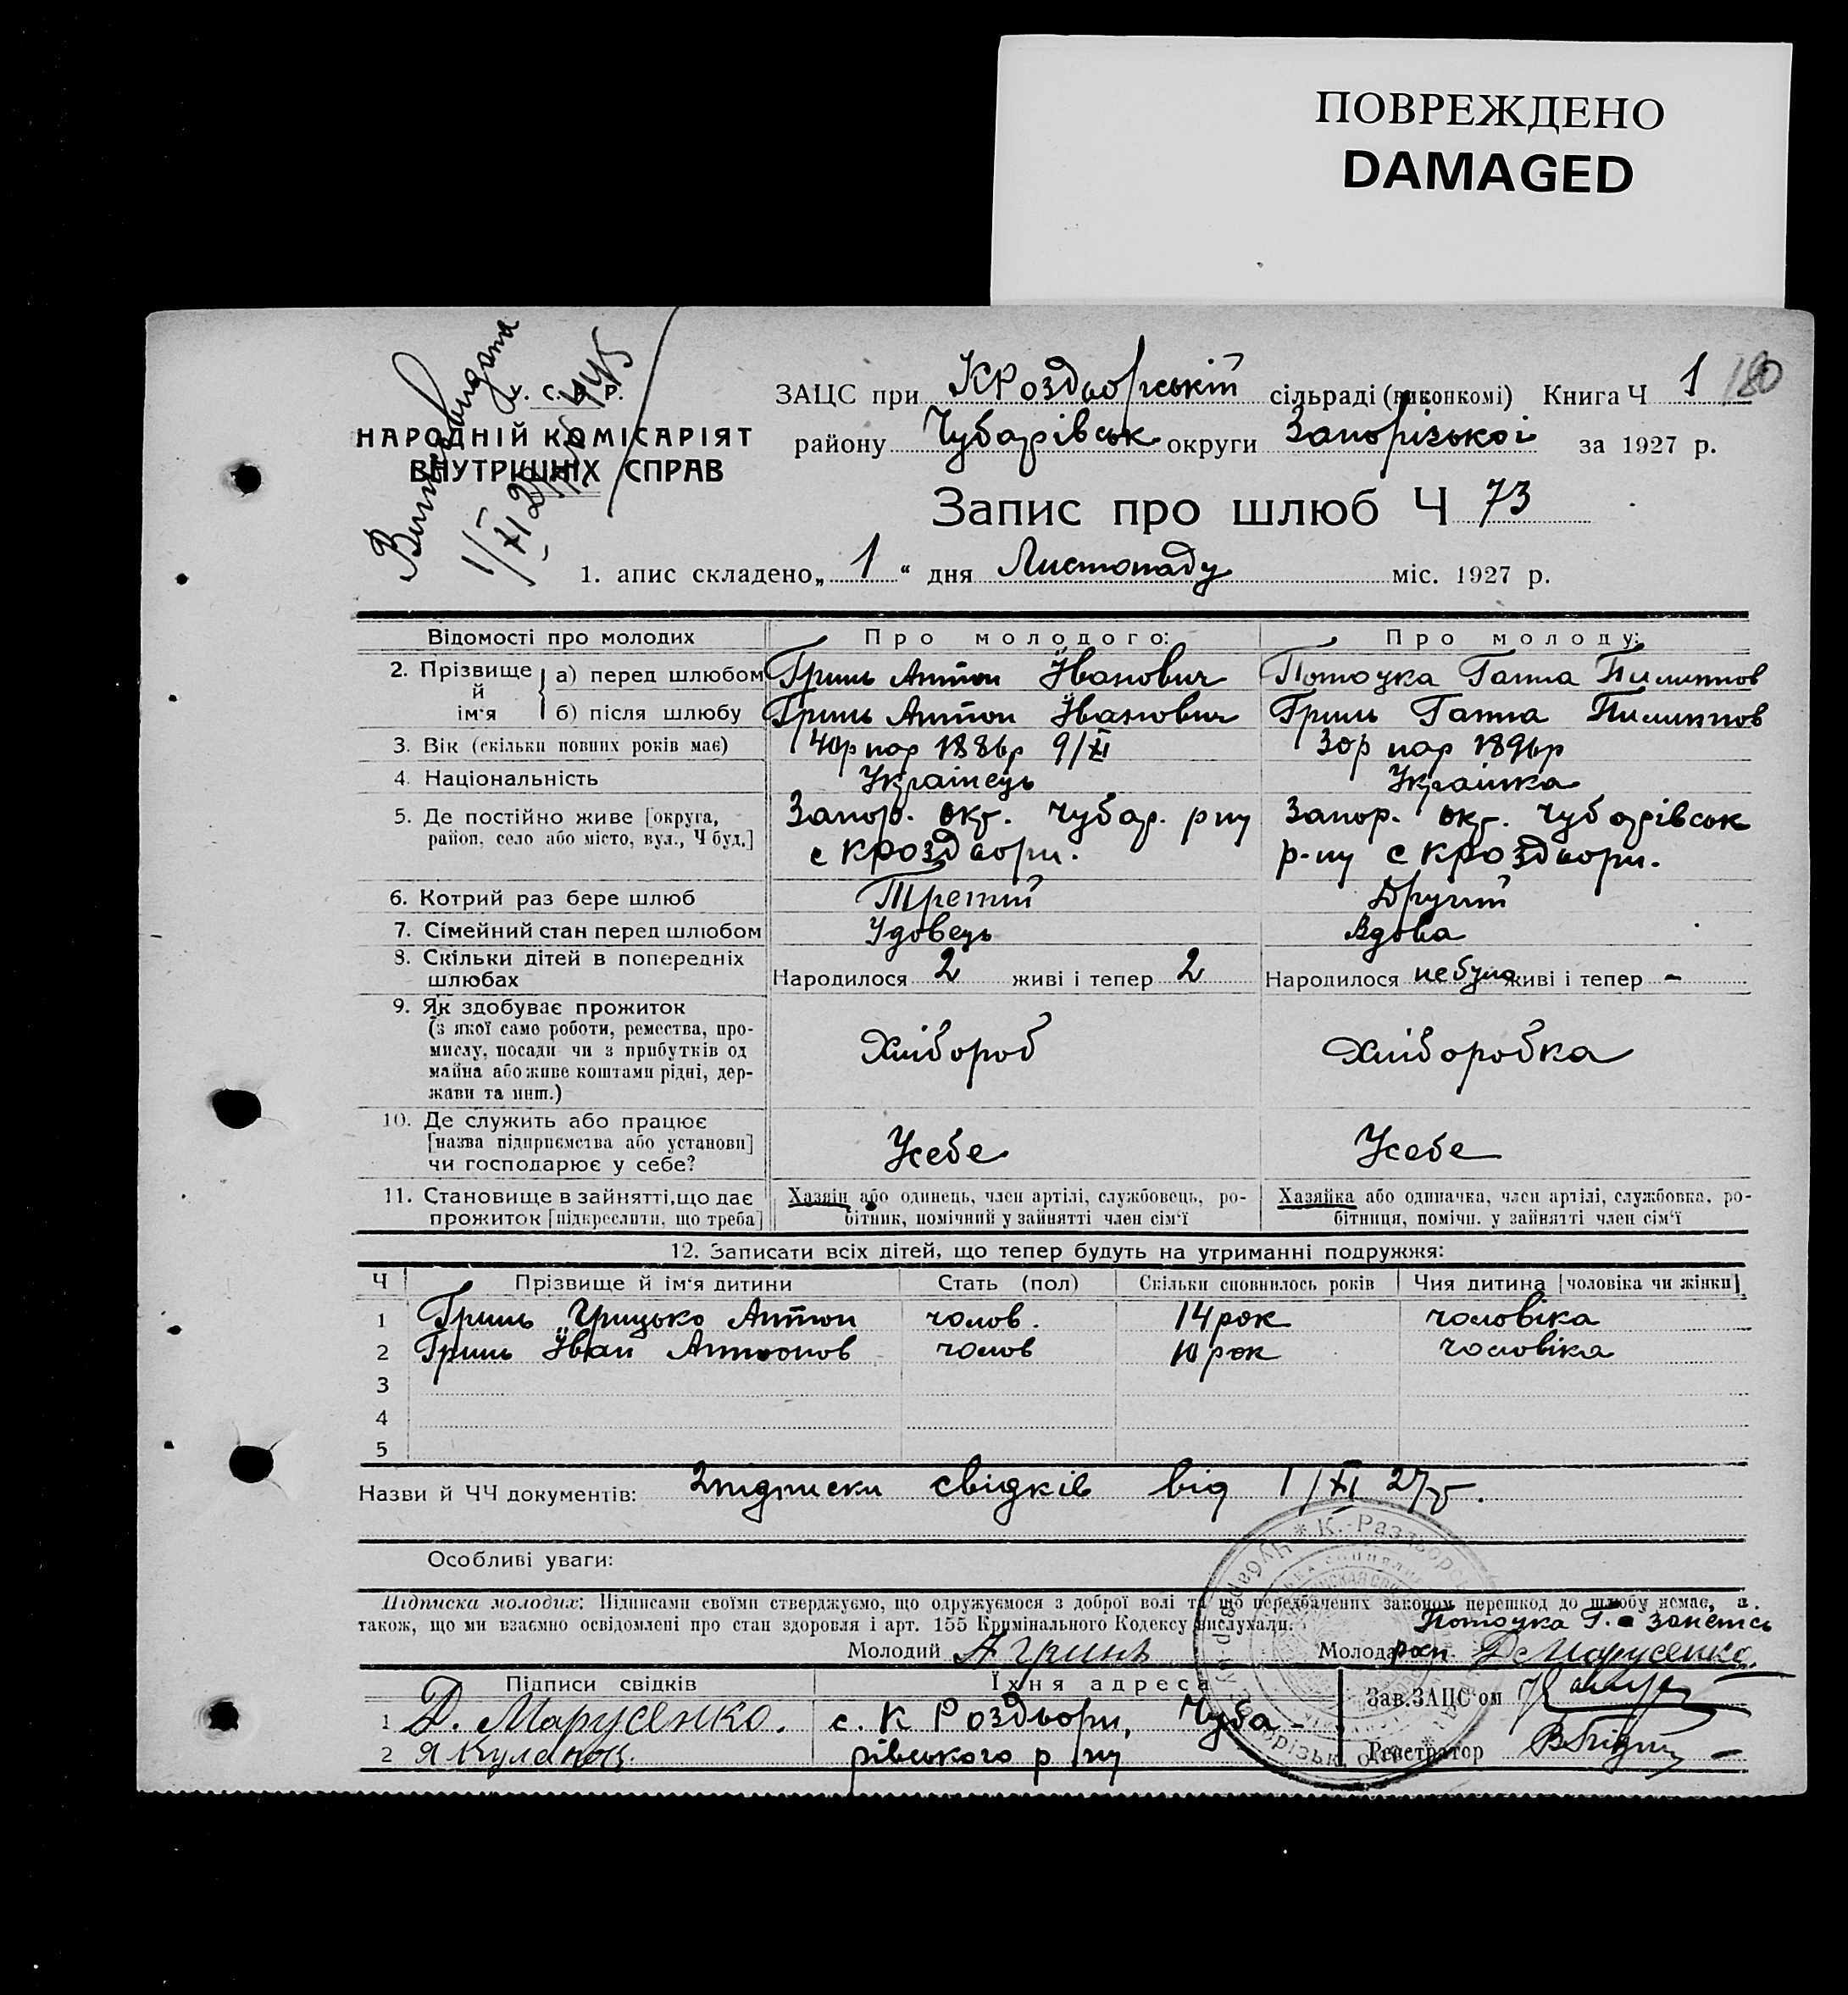 ПОВРЕЖДЕНО
DAMAGED
У. С. Р. Р.
НАРОДНІЙ КОМІСАРІЯТ
ВНУТРІШНІХ СПРАВ
1/XI 27
ЗАЦС при КРоздьорській сільраді (виконкомі) Книга Ч 1 180
району Чубарівськ округи Запорізької за 1927 р.
Запис про шлюб Ч 73
1. апис складено „ 1 “ дня Листопаду міс. 1927 р.
Відомості про молодих Про молодого: Про молоду:
2. Прізвище й ім'я
а) перед шлюбом Гринь Антон Іванович Ганна Пилипов
б) після шлюбу Гринь Антон Іванович Гринь Ганна Пилипов
3. Вік (скільки повних років має) 40р нар 1886р 9/XI 30р нар 1896р
4. Національність Українець Українка
5. Де постійно живе [округа, район, село або місто, вул., Ч буд.]
Запор. окр. Чубар. р ну
с КРоздвори.
Запор. окр. Чубарівськ
р-ну с КРоздвори.
6. Котрий раз бере шлюб Третій Другий
7. Сімейний стан перед шлюбом Удовець Вдова
8. Скільки дітей в попередніх шлюбах Народилося 2 живі і тепер 2 Народилося не було живі і тепер -
9. Як здобуває прожиток
(з якої саме роботи, ремества, про-
мислу, посади чи з прибутків од
майна або живе коштами рідні, дер-
жави та инш.)
Хлібороб Хліборобка
10. Де служить або працює
[назва підприємства або установи]
чи господарює у себе?
Усебе Усебе
11. Становище в зайнятті, що дає
прожиток [підкреслити, що треба]
Хазяїн або одинець, член артілі, службовець, ро-
бітник, помічний у зайнятті член сім'ї
Хазяйка або одиначка, член артілі, службовка, ро-
бітниця, помічн. у зайнятті член сім'ї
12. Записати всіх дітей, що тепер будуть на утриманні подружжя:
Ч Прізвище й ім'я дитини Стать (пол) Скільки сповнилось років Чия дитина [чоловіка чи жінки]
1 Гринь Грицько Антон чолов. 14 рок чоловіка
2 Гринь Іван Антонов чолов 10 рок чоловіка
3
4
5
Назви й ЧЧ документів: 2 підписки свідків від 1/XI 27р.
Особливі уваги:
Підписка молодих: Підписами своїми стверджуємо, що одружуємося з доброї волі та що передбачених законом перешкод до шлюбу немає, а
також, що ми взаємно освідомлені про стан здоровля і арт. 155 Кримінального Кодексу вислухали.
Молодий А Гринь Молода Д Марусенко.
Підписи свідків Їхня адреса Зав. ЗАЦС'ом
1 Д. Марусенко. с. К Роздвори, Чуба-
2 рівського р ну Реєстратор